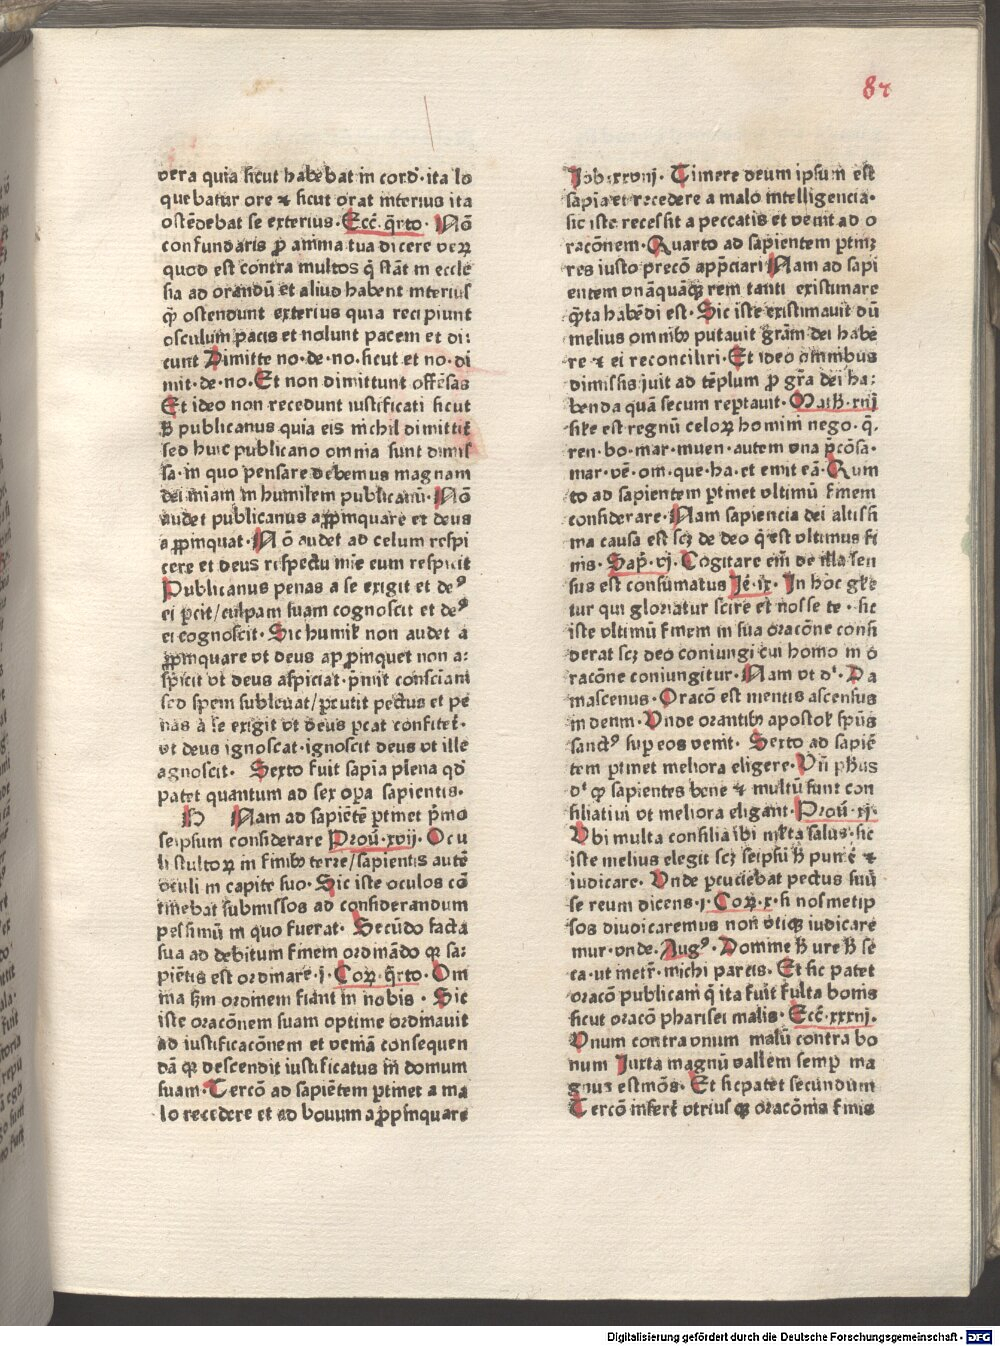 84
vera quia sicut habebat in cord̕·ita lo
quebatur ore ⁊ sicut orat interius ita
ostēdebat se exterius·Ecc̄·q̄rto·Nō
confundaris ꝓ anima tua dicere veꝝ
quod est contra multos q̇ stāt in eccle
sia ad orandū et aliud habent interius
qꝫ ostendunt exterius quia recipiunt
osculum pacis et nolunt pacem et di:
cunt Dimitte no·de·no·sicut et no·di
mit·de·no·Et non dimittunt offēsas
Et ideo non recedunt iustificati sicut
ħ publicanus quia eis nichil dimittit᷑
sed huic publicano omnia sunt dimis
sa·in quo pensare debemus magnam
dei miām in humilem publicanū·Nō
audet publicanus aꝓpinquare et deus
aꝓpinquat·Nō audet ad celum respi
cere et deus respectu mīe eum respicit
Publicanus penas a se exigit et de⁹
ei ꝑcit/culpam suam cognoscit et de⁹
ei cognoscit·Sic humil̕ non audet a
ꝓpinquare vt deus apꝓpinquet non a:
spicit vt deus aspiciat·p̄mit consciam
sed spem subleuat/ꝑcutit pectus et pe
nas a se exigit vt deus ꝑcat confitet᷑·
vt deus ignoscat·ignoscit deus vt ille
agnoscit· Sexto fuit sapīa plena qd̄
patet quantum ad sex oꝑa sapientis·
H Nam ad sapiētē ꝑtinet p̄mo
seipsum considerare Prou̅·xvij·Ocu
li stultoꝝ in finibꝫ terre/sapientis autē
oculi in capite suo·Sic iste oculos cō
tinebat submissos ad considerandum
pessimū in quo fuerat· Secūdo facta
sua ad debitum finem ordinādo qꝫ sa:
piētis est ordinare·j·Coꝝ·q̄rto·Om
nia scd̄m ordinem fiant in nobis·Sic
iste oracōnem suam optime ordinauit
ad iustificacōnem et veniā consequen
dā qꝫ descendit iustificatus in domum
suam·Tercō ad sapiētem ꝑtinet a ma
lo recedere et ad bonum aꝓpinquare
Job·xxviij·Timere deum ipsum est
sapīa et recedere a malo intelligencia·
sic iste recessit a peccatis et venit ad o
racōnem·Quarto ad sapientem ꝑtinꝫ
res iusto precō app̄ciari Nam ad sapi
entem vnāquāqꝫ rem tanti existimare
q̄ta habēdi est·Sic iste existimauit dū
melius omnibꝫ putauit grām dei habe
re ⁊ ei reconciliri·Et ideo omnibus
dimissis iuit ad tēplum ꝓ gr̄a dei ha:
benda quā secum reportauit·Math·xiij
sil̕e est regnū celoꝝ homini nego·q̄·
ren·bo·mar·inuen·autem vna p̄cōsa·
mar·vē·om·que·ha·et emit eā·Quin
to ad sapientem ꝑtinet vltimū finem
considerare·Nam sapiencia dei altissi
ma causa est scꝫ de deo q̇ est vltimus fi
nis·Sap̄·vj·Cogitare em̄ de illa sen
sus est consūmatus Ie̅·ix·In hoc gl̕e
tur qui gloriatur scire et nosse te·sic
iste vltimū finem in sua oracōne consi
derat scꝫ deo coniungi cui homo in o
racōne coniungitur·Nam vt d̕·Da
mascenus·Oracō est mentis ascensus
in deum·Vnde orantibꝫ apostol̕ spūs
sanct⁹ suꝑ eos venit· Sexto ad sapiē
tem ꝑtinet meliora eligere·Vn̄ ph̄us
d̕ qꝫ sapientes bene ⁊ multū sunt con
siliatiui vt meliora eligant·Prou̅·xj·
Vbi multa consilia ibi ml̕ta salus·sic
iste melius elegit scꝫ seipsū ħ punire ⁊
iudicare· Vnde ꝑcuciebat pectus suū
se reum dicens·j·Coꝝ·x·si nosmetip
sos diuidicaremus non vtiqꝫ iudicare
mur·vnde·Aug⁹·Domine ħ vre ħ se
ca·ut metr̄·michi parcis·Et sic patet
oracō publicani q̇ ita fuit fulta bonis
sicut oracō pharisei malis·Ecc̄·xxxiij·
Vnum contra vnum malū contra bo
num Iuxta magnū vallem semꝑ ma
gnus est mōs·Et sic patet secundum
Tercō infert᷑ vtrius qꝫ oracōnis finis
Digitalisierung gefördert durch die Deutsche Forschungsgemeinschaft - DFG